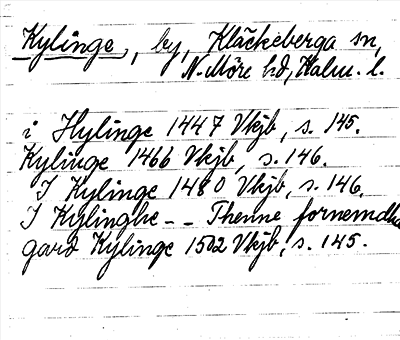 Kylinge, by, Kläckeberga sn,
N. Möre hd, Kalm. l.
i Hylinge 1447 Vkjb, s. 145.
Kylinge 1466 Vkjb, s. 146.
I Kylinge 1480 Vkjb, s. 146.
I Kylinghe -- Thenne fornemdha
gard Kylinge 1502 Vkjb, s. 145.